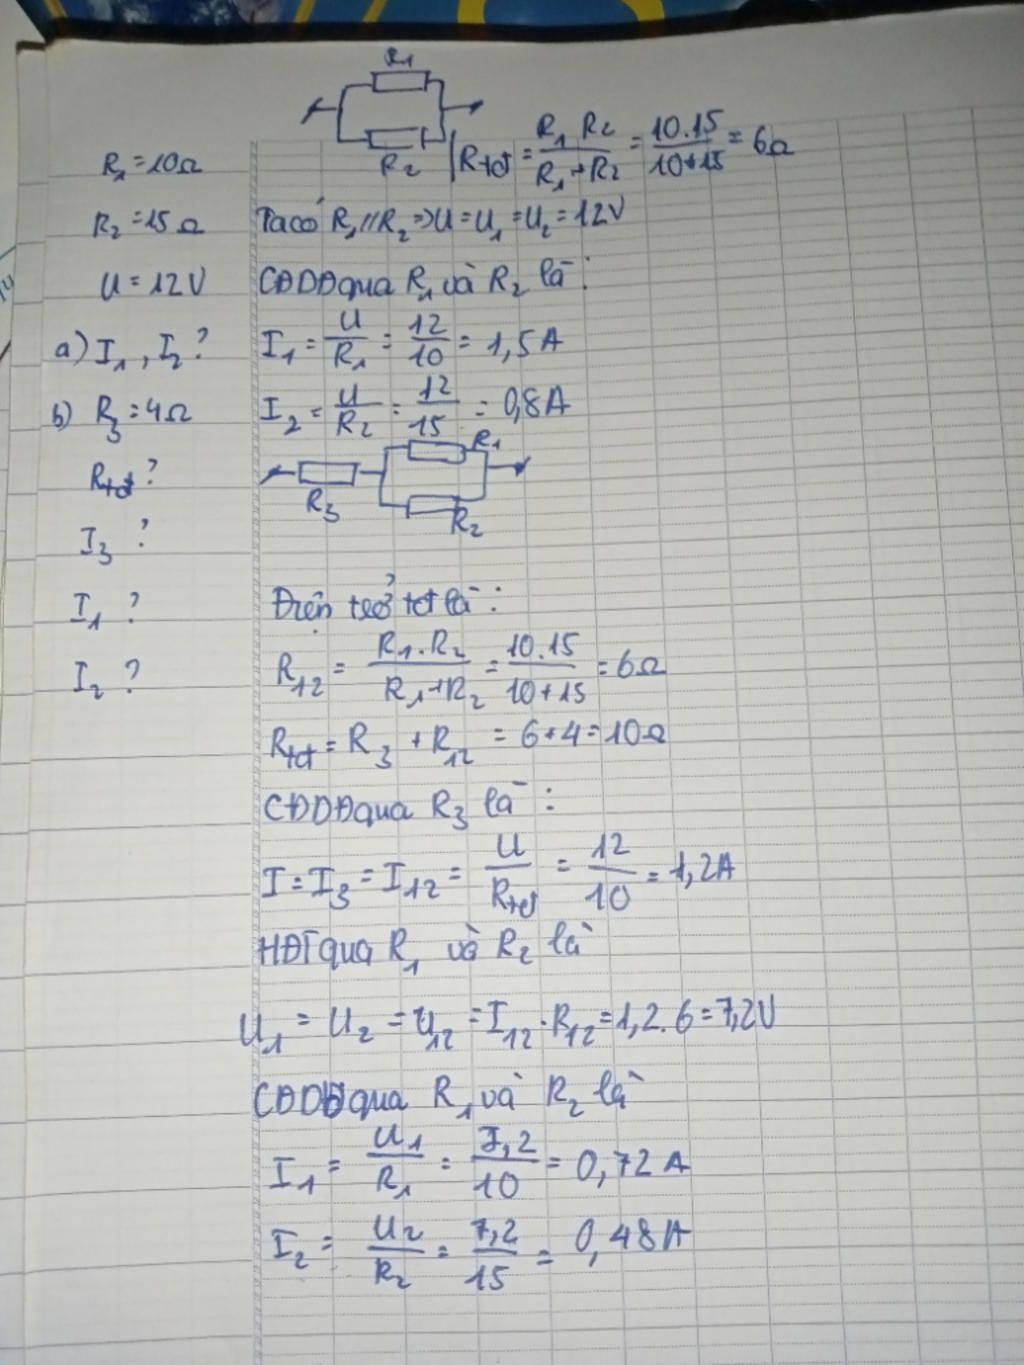 R1
R2
Rtđ = R1 R2 / R1 + R2 = 10.15 / 10+15 = 6Ω
R1 = 10Ω
R2 = 15Ω
Ta có R1 // R2 => U = U1 = U2 = 12V
U = 12V
CĐDĐ qua R1 và R2 là :
a) I1, I2 ?
I1 = U / R1 = 12 / 10 = 1,5A
b) R3 = 4Ω
I2 = U / R2 = 12 / 15 = 0,8A
R1
R3
R2
Rtđ ?
I3 ?
I1 ?
I2 ?
Điện trở tđ là :
R12 = R1.R2 / R1+R2 = 10.15 / 10+15 = 6Ω
Rtđ = R3 + R12 = 6+4 = 10Ω
CĐDĐ qua R3 là :
I = I3 = I12 = U / Rtđ = 12 / 10 = 1,2A
HĐT qua R1 và R2 là
U1 = U2 = U12 = I12 . R12 = 1,2.6 = 7,2V
CĐDĐ qua R1 và R2 là
I1 = U1 / R1 = 7,2 / 10 = 0,72A
I2 = U2 / R2 = 7,2 / 15 = 0,48A